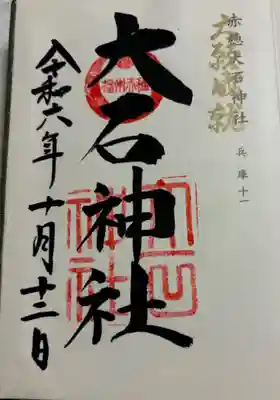 赤穂大石神社
兵庫十一
大願成就
大石神社
令和六年十月十二日
播州赤穂
大石神社